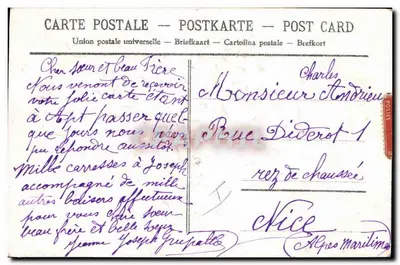 CARTE POSTALE — POSTKARTE — POST CARD
Union postale universelle — Briefkaart — Cartolina postale — Brefkort
Cher sœur et beau Frère
Nous venont de recevoir
votre jolie carte étant
à Apt passer quel-
que jours nous
pu répondre aussitôt
Mille carresses à Joseph
accompagné de mille
autres baisers affectueux
pour vous chère sœur
beau frère et belle sœur
Jeanne Joseph
Charles
Monsieur Andrieu
Rue Diderot 1
rez de chaussée
Nice
(Alpes Maritimes